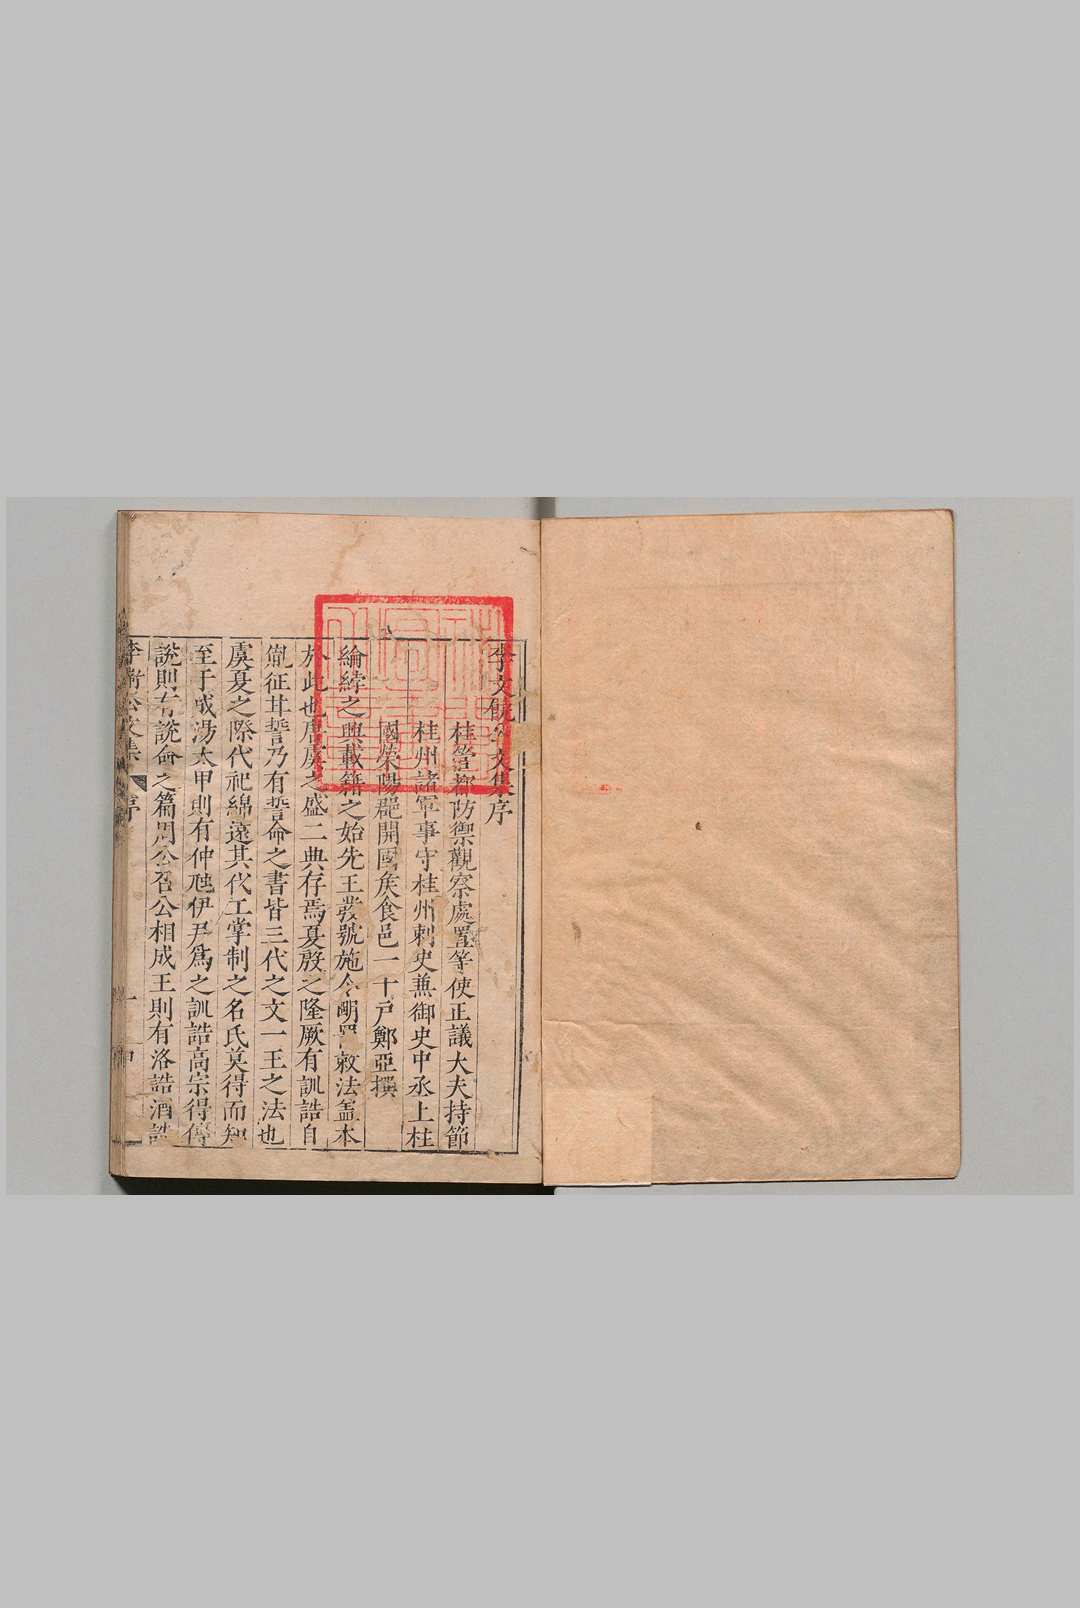 李文饒公文集序
桂管都防禦觀察處置等使正議大夫持節
桂州諸軍事守桂州刺史兼御史中丞上柱
國滎陽郡開國矦食邑一十戶鄭亞撰
綸緯之興載籍之始先王發號施令明罰敕法盖本
於此也唐虞之盛二典存焉夏殷之隆厥有訓誥自
胤征甘誓乃有誓命之書皆三代之文一王之法也
虞夏之際代祀綿遠其代工掌制之名氏莫得而知
至于成湯太甲則有仲虺伊尹爲之訓誥高宗得傅
說則有說命之篇周公召公相成王則有洛誥酒誥
李衛公文集 序 一